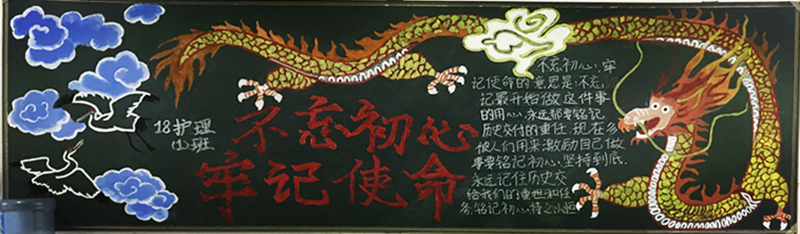 18护理
(1)班
不忘初心
牢记使命
不忘初心,牢
记使命的意思是不忘,
记最开始做这件事
的用心,永远都要铭记
历史交付的重任,现在多
被人们用来激励自己做
事要铭记初心,坚持到底.
永远记住历史交
给我们的重担和任
务,铭记初心持之以恒